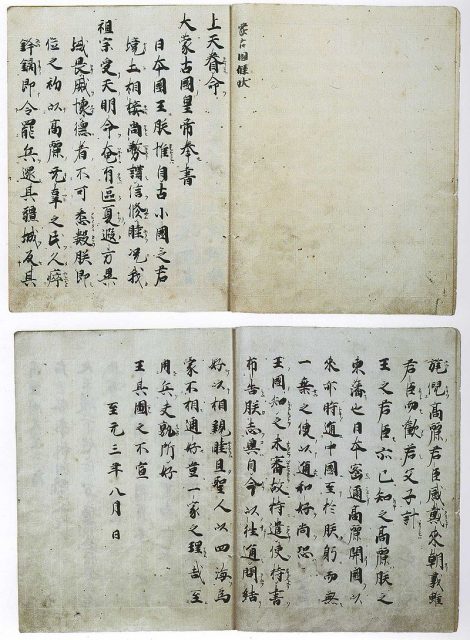 蒙古国牒状
上天眷命
大蒙古國皇帝奉書
日本國王朕惟自古小國之君
境土相接尚務講信修睦況我
祖宗受天明命奄有區夏遐方異
域畏威懷德者不可悉數朕即
位之初以高麗无辜之民久瘁
鋒鏑即令罷兵還其疆域反其
旄倪高麗君臣感戴來朝義雖
君臣而歡若父子計
王之君臣亦已知之高麗朕之
東藩也日本密邇高麗開國以
來亦時通中國至於朕躬而無
一乗之使以通和好尚恐
王國知之未審故特遣使持書
布告朕志冀自今以往通問結
好以相親睦且聖人以四海為
家不相通好豈一家之理哉至
用兵夫孰所好
王其圖之不宣
至元三年八月日